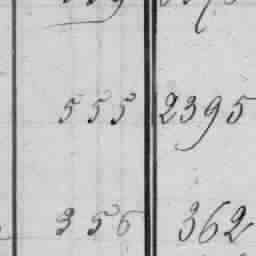 555 2395
356 362